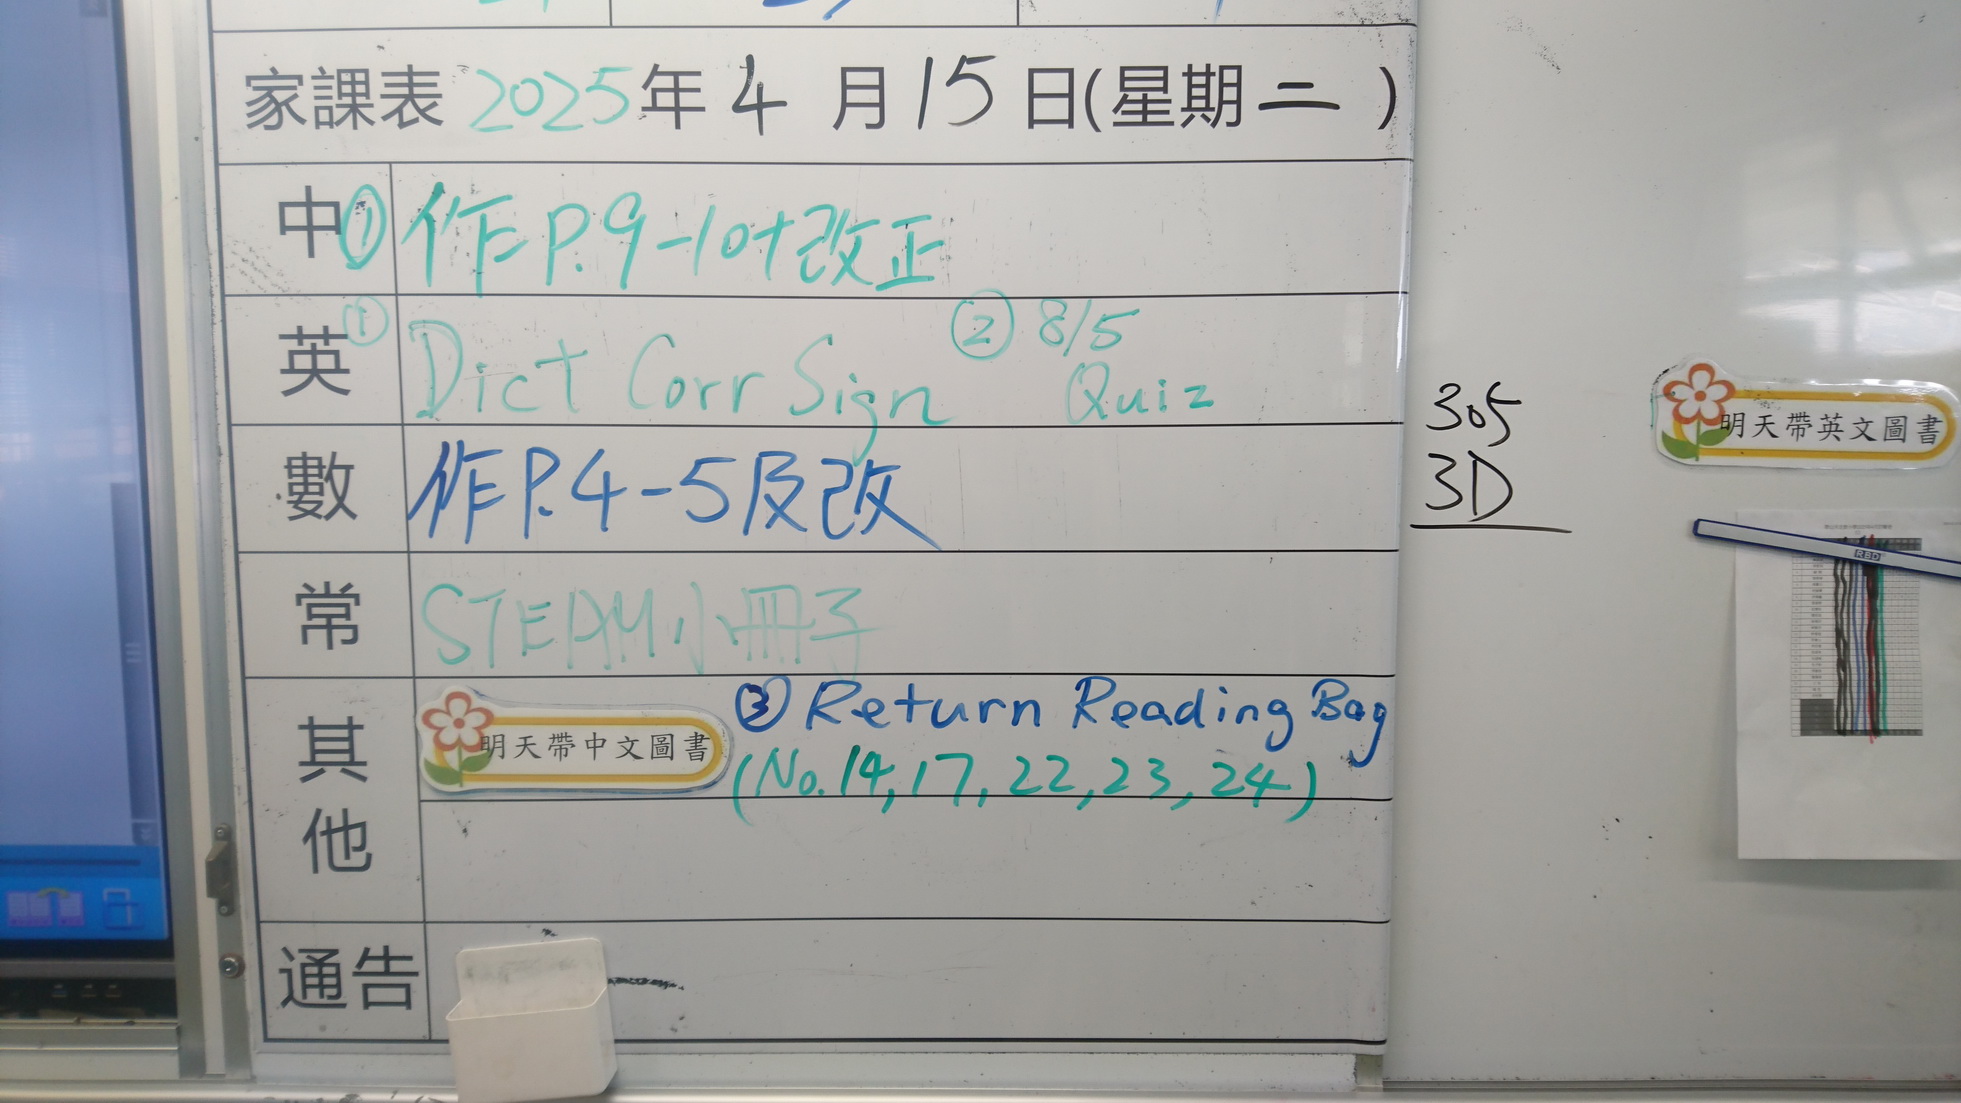 家課表 2025年 4 月 15 日(星期二 )
中 ① 作 P.9-10+改正
英 ① Dict Corr Sign ② 8/5 Quiz
數 作 P.4-5及改
常 STEAM小冊子
其他 明天帶中文圖書 ③ Return Reading Bag
(No.14, 17, 22, 23, 24)
通告
305
3D
明天帶英文圖書
RBD